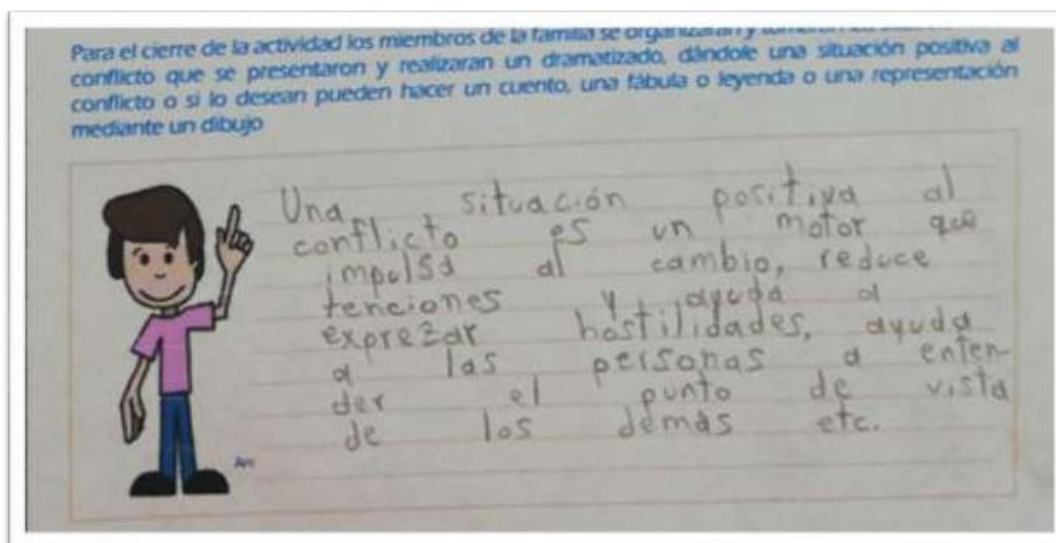 Para el cierre de la actividad los miembros de la familia se organizaran y
conflicto que se presentaron y realizaran un dramatizado, dándole una situación positiva al
conflicto o si lo desean pueden hacer un cuento, una fábula o leyenda o una representación
mediante un dibujo
Una situación positiva al
conflicto es un motor que
impulsa al cambio, reduce
tenciones y ayuda a
exprezar hostilidades, ayuda
a las personas a enten-
der el punto de vista
de los demás etc.